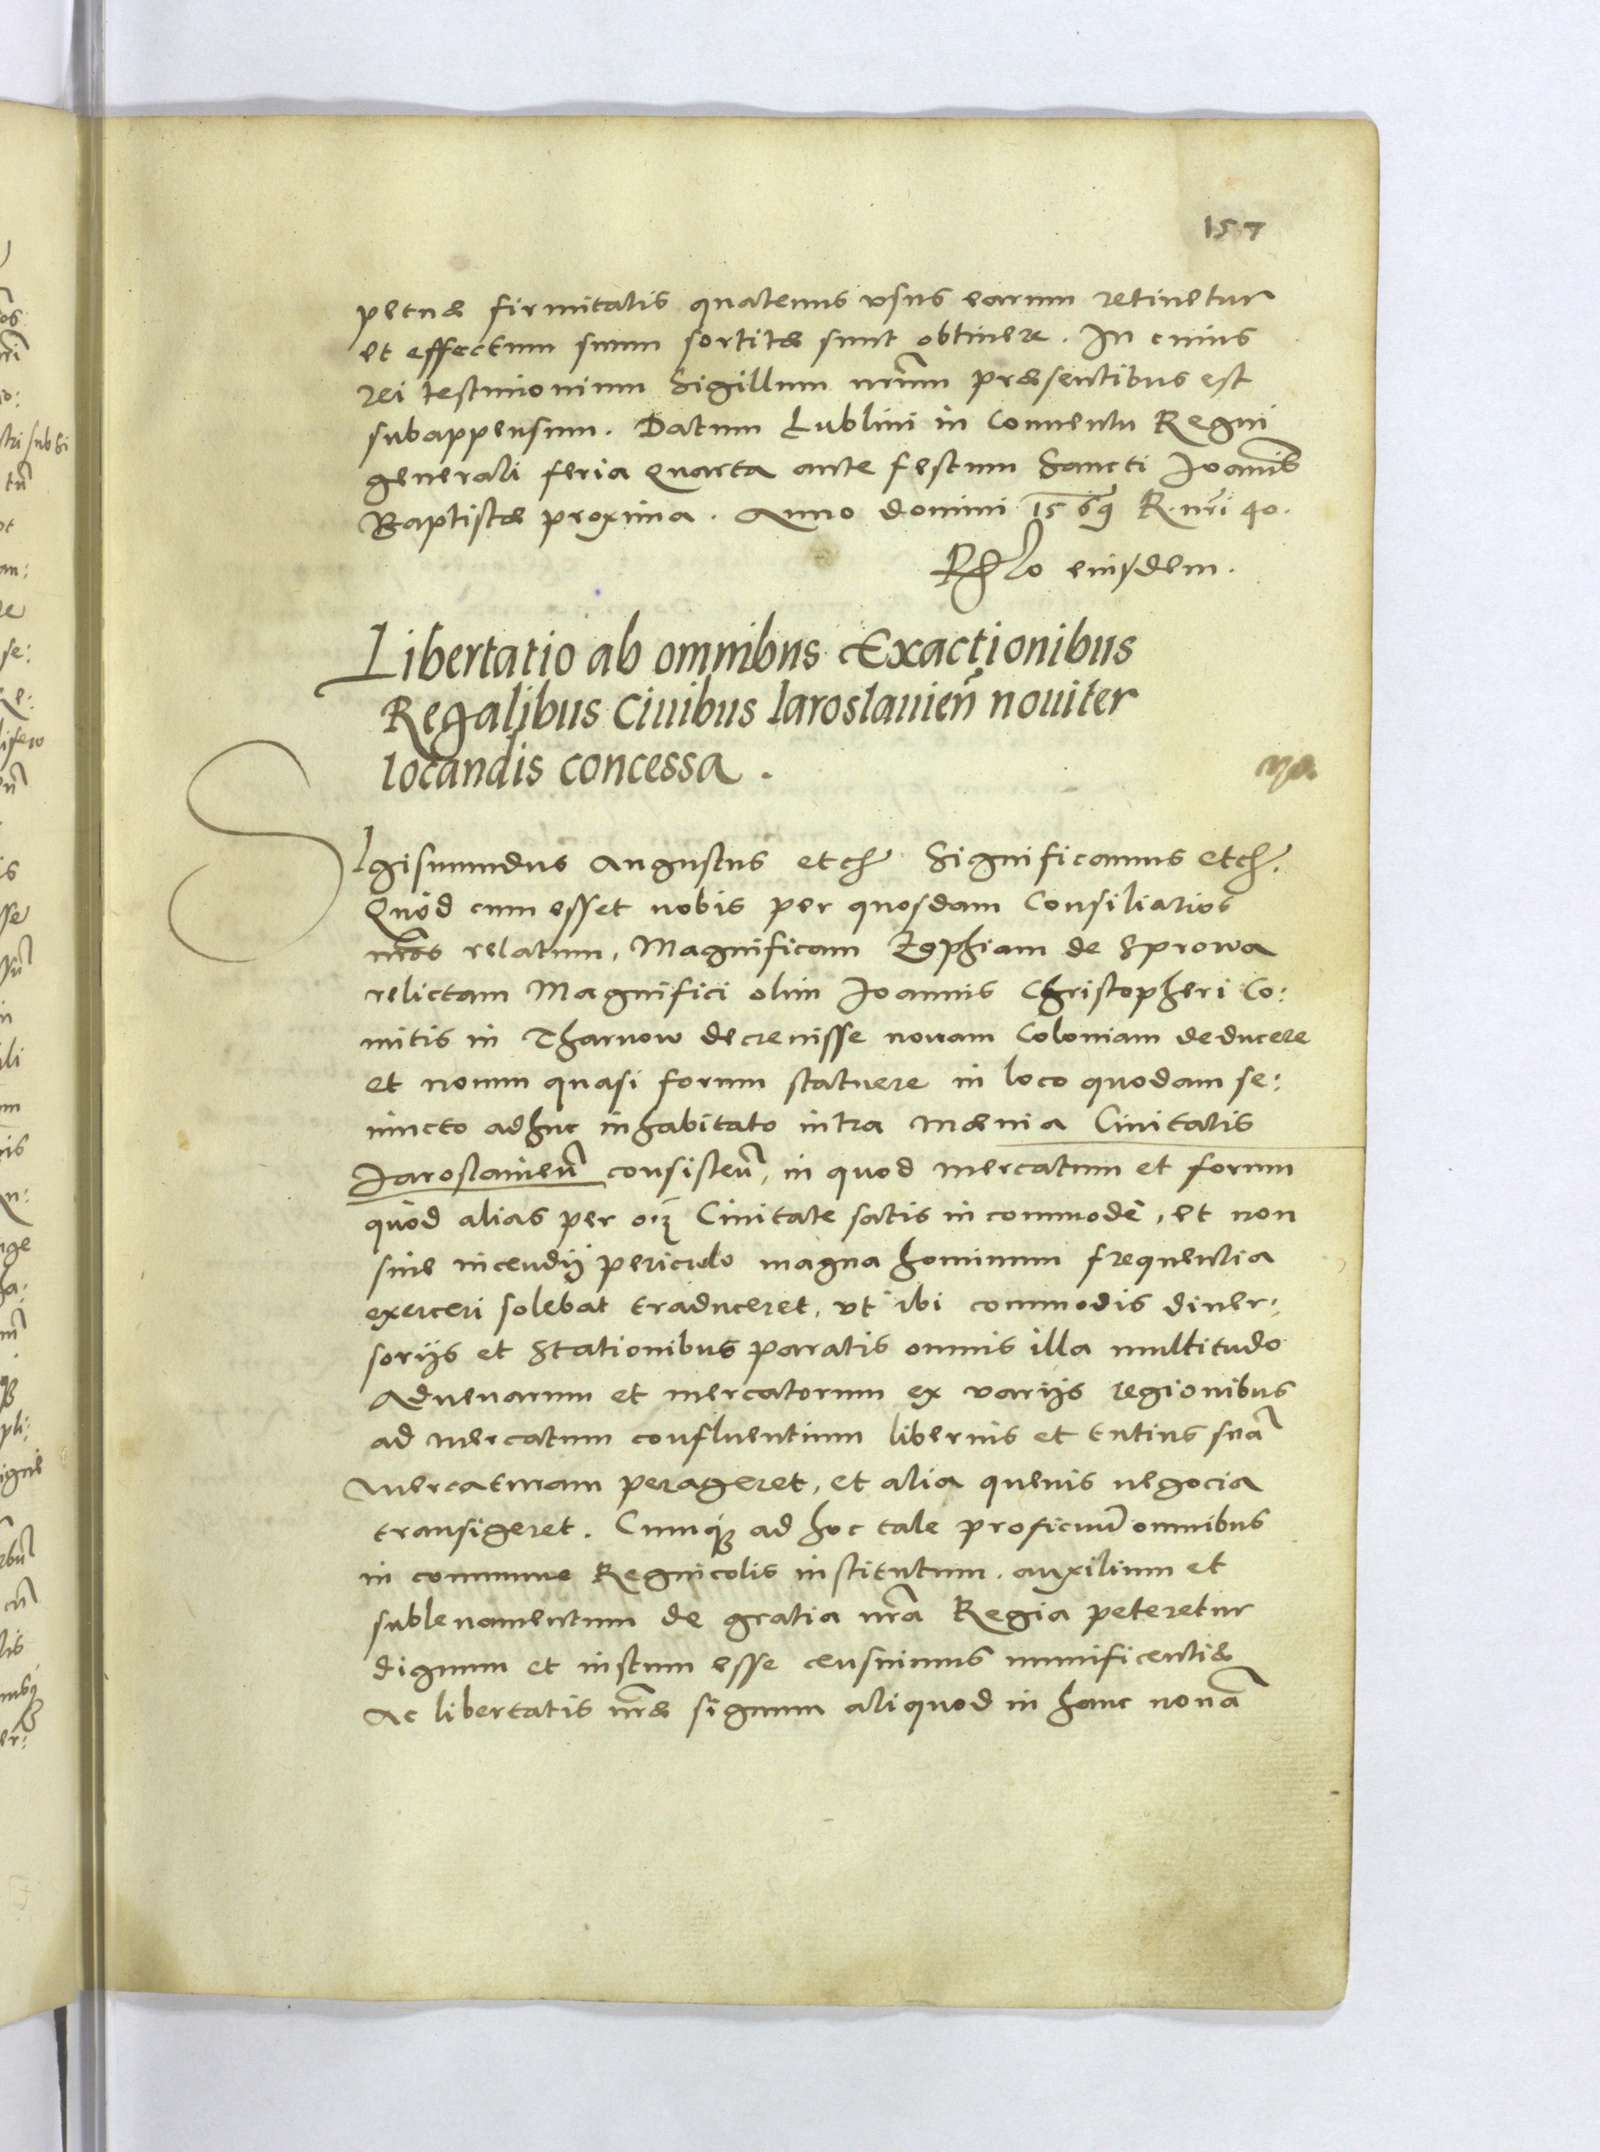 157
petuæ firmitatis quatenus vsus earum retinetur
et effectum suum sortitæ sunt obtinere. In cuius
rei testimonium Sigillum nrũm præsentibus est
subappensum. Datum Lublini in Conuentu Regni
generali feria Quarta ante festum Sancti Joanis̃
Baptistæ proxima. Anno domini 1569 R. nrĩ 40.
Rlo eiusdem.
Libertatio ab omnibus Exactionibus
Regalibus Ciuibus Iaroslauieñ nouiter
locandis concessa.
SIgismundus Augustus etc. Significamus etc.
Quòd cum esset nobis per quosdam Consiliarios
nros̃ relatum, Magnificam Zophiam de Sprowa
relictam Magnifici olim Joannis Christopheri Co:
mitis in Tharnow decreuisse nouam Coloniam deducere
et nouum quasi forum statuere in loco quodam se:
iuncto adhuc inhabitato intra mænia Ciuitatis
Jaroslauieñ consisteñ, in quod mercatum et forum
quòd alias per oem̃ Ciuitate satis incommodè, et non
sine incendij periculo magna hominum frequentia
exerceri solebat traduceret, vt ibi commodis diuer:
sorijs et Stationibus paratis omnis illa multitudo
Aduenarum et mercatorum ex varijs regionibus
ad mercatum confluentium liberius et tutius suã
mercaturam perageret, et alia queuis negocia
transigeret. Cumq; ad hoc tale proficuũ omnibus
in commune Regnicolis institutum, auxilium et
subleuamentum de gratia nrã Regia peteretur
dignum et iustum esse censuimus munificentiæ
Ac libertatis nræ̃ signum aliquod in hanc nouã